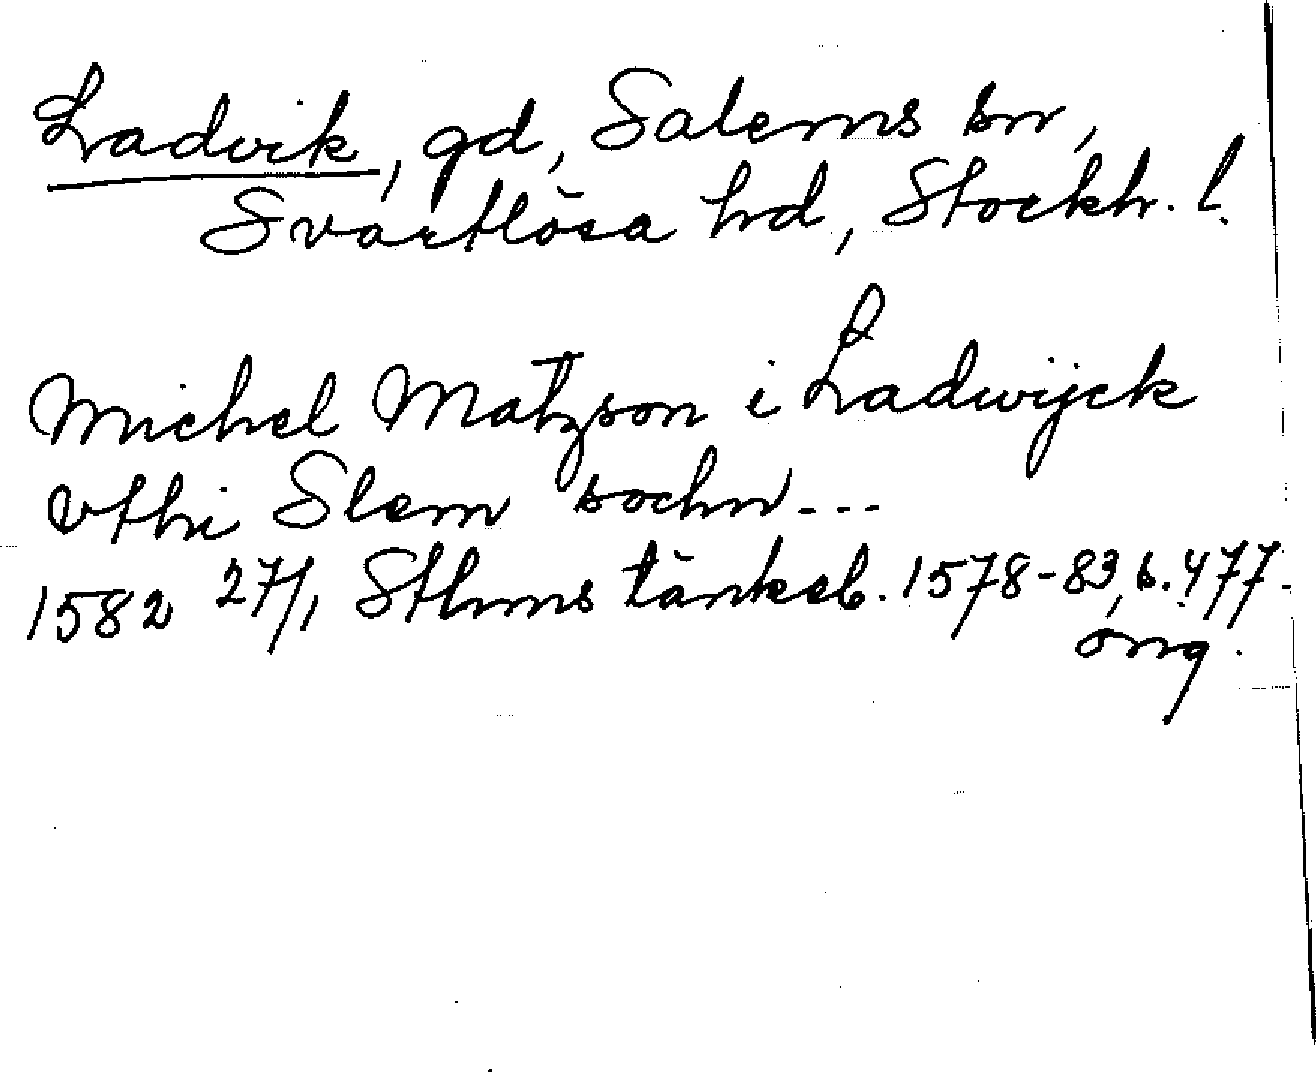 Ladvik, gd, Salems sn,
Svartlösa hd, Stockh. l.
Michel Matzson i Ladwijck
vthi Slem sochn...
1582 27/1, Sthms tänkeb. 1578-83, s. 477.
orig.